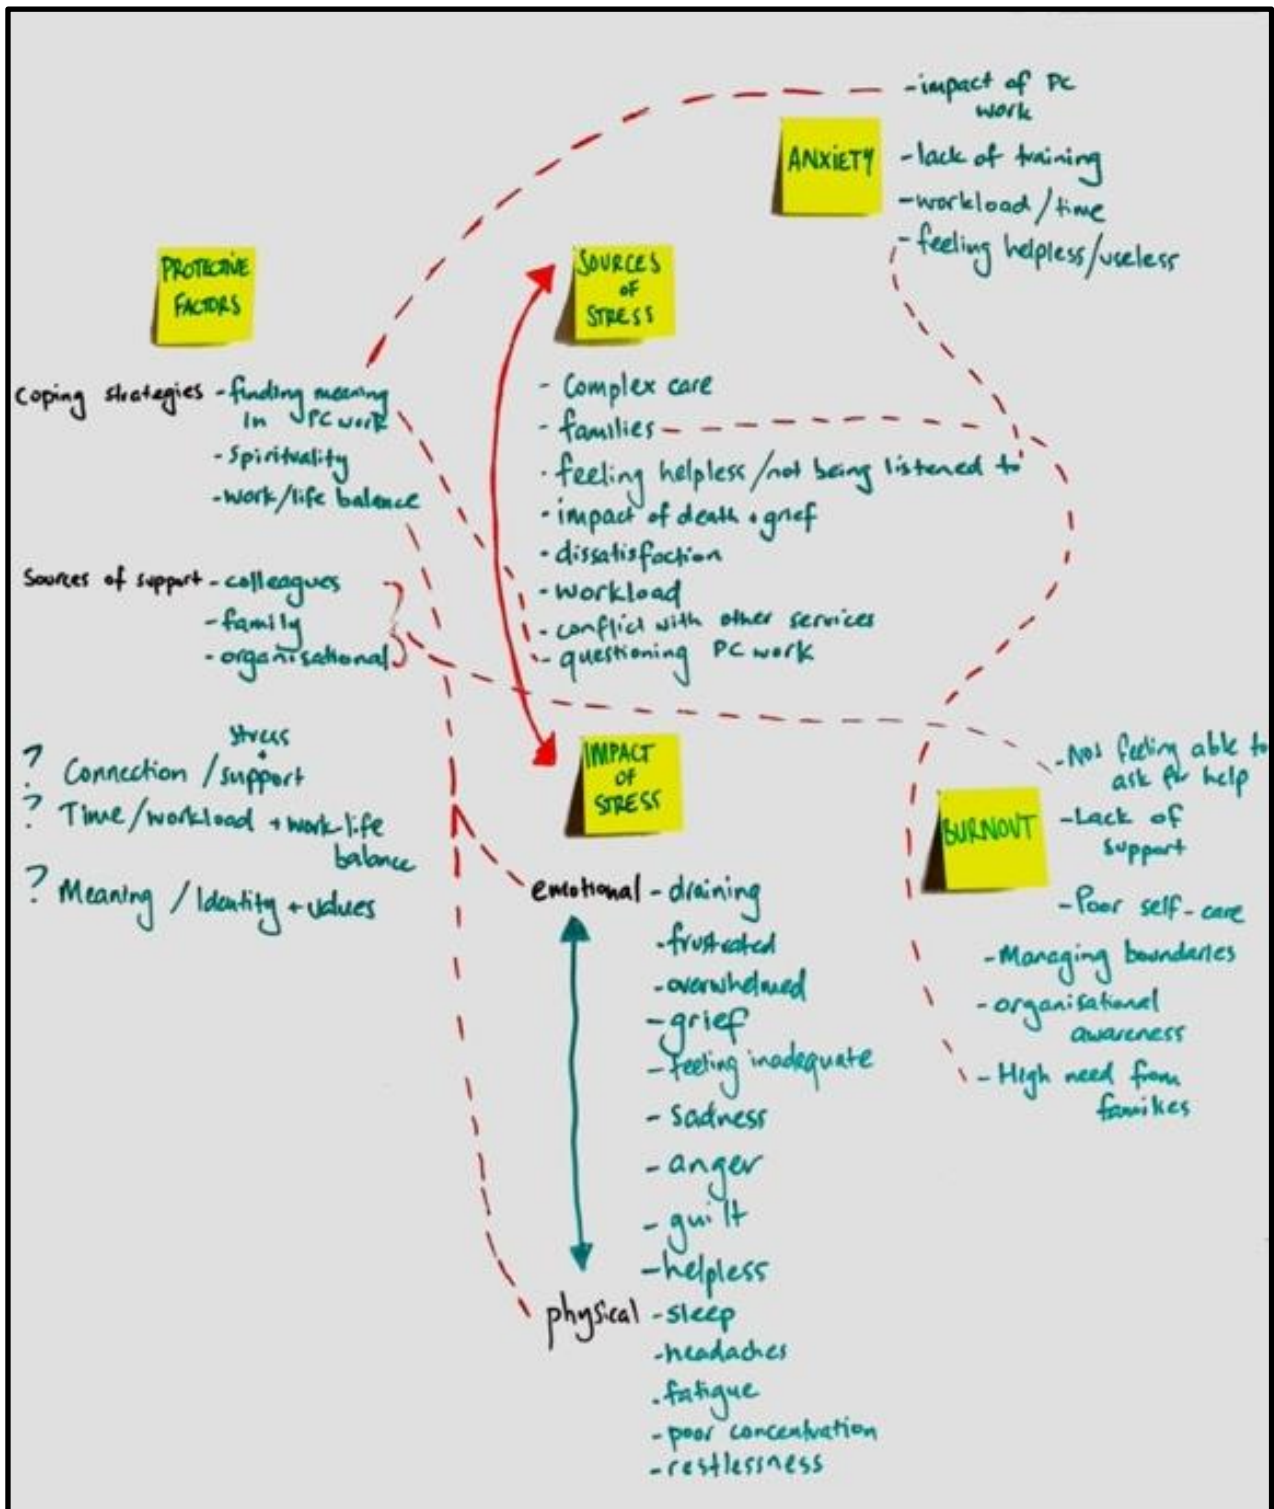 - impact of PC
work
ANXIETY
- lack of training
- workload/time
- feeling helpless/useless
PROTECTIVE
FACTORS
Coping strategies - finding meaning
in PC work
- Spirituality
- work/life balance
Sources of support - colleagues
- family
- organisational
stress
+
? Connection / support
? Time/workload + work-life
balance
? Meaning / Identity + values
SOURCES
OF
STRESS
- Complex care
- families
- feeling helpless/not being listened to
- impact of death + grief
- dissatisfaction
- workload
- conflict with other services
- questioning PC work
IMPACT
OF
STRESS
emotional - draining
- frustrated
- overwhelmed
- grief
- feeling inadequate
- Sadness
- anger
- guilt
- helpless
physical - sleep
- headaches
- fatigue
- poor concentration
- restlessness
BURNOUT
- Not feeling able to
ask for help
- Lack of
support
- Poor self-care
- Managing boundaries
- organisational
awareness
- High need from
families